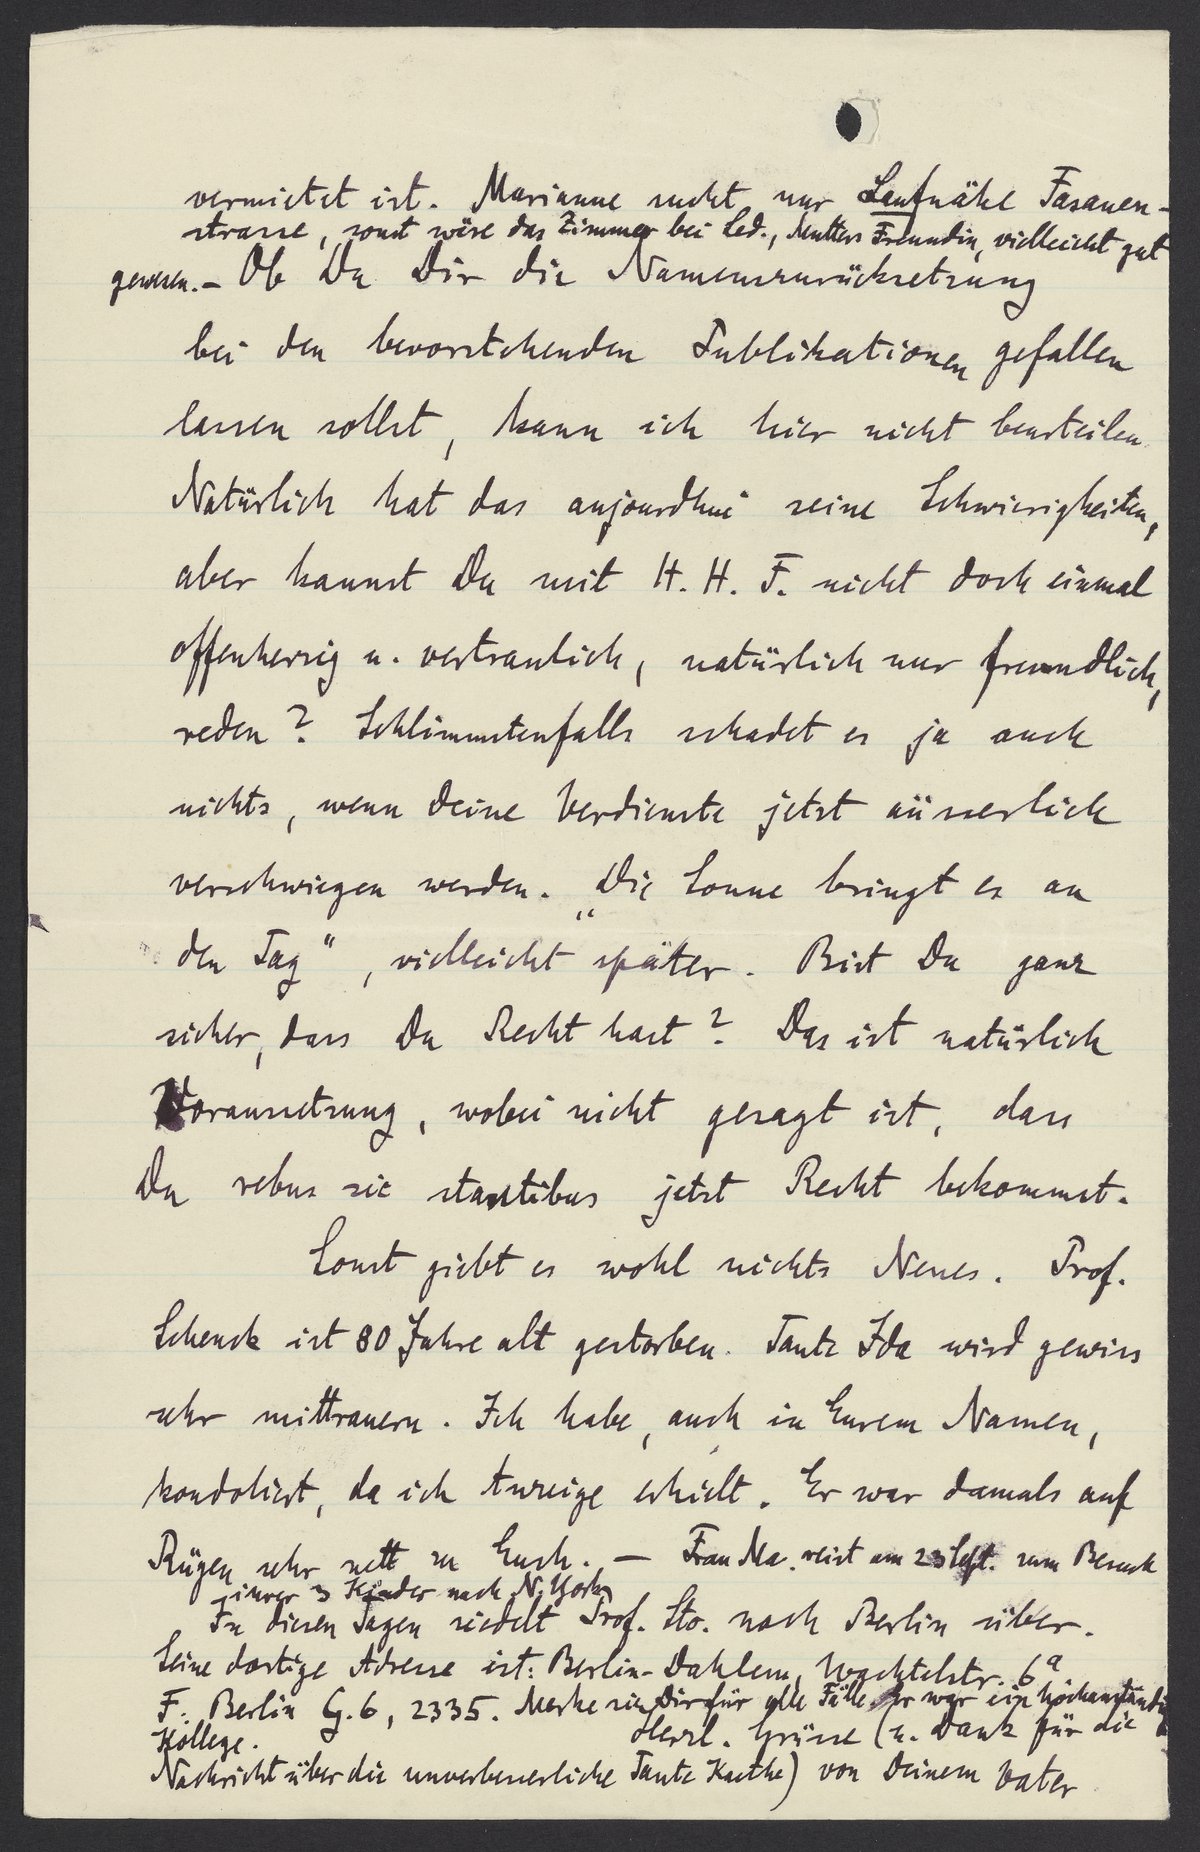 vermietet ist. Marianne sucht nur Laufnähe Fasanen-
strasse, sonst wäre das Zimmer bei Led., Mutters Freundin, vielleicht gut
gewesen. – Ob Du Dir die Namenszurücksetzung
bei den bevorstehenden Publikationen gefallen
lassen sollst, kann ich hier nicht beurteilen.
Natürlich hat das aujourdhui seine Schwierigkeiten,
aber kannst Du mit H. H. F. nicht doch einmal
offenherzig u. vertraulich, natürlich nur freundlich,
reden? Schlimmstenfalls schadet es ja auch
nichts, wenn Deine Verdienste jetzt äüsserlich
verschwiegen werden. „Die Sonne bringt es an
den Tag“, vielleicht später. Bist Du ganz
sicher, dass Du Recht hast? Das ist natürlich
Voraussetzung, wobei nicht gesagt ist, dass
Du rebus sic stantibus jetzt Recht bekommst.
Sonst giebt es wohl nichts Neues. Prof.
Schenck ist 80 Jahre alt gestorben. Tante Ida wird gewiss
sehr mittrauern. Ich habe, auch in Eurem Namen,
kondoliert, da ich Anzeige erhielt. Er war damals auf
Rügen sehr nett zu Euch. – Frau Ma. reist am 23 Sept. zum Besuch
ihrer 3 Kinder nach N. York
In diesen Tagen siedelt Prof. Sto. nach Berlin über.
Seine dortige Adresse ist: Berlin-Dahlem, Wachtelstr. 6a
F. Berlin G. 6, 2335. Merke sie Dir für alle Fälle. Er war ein hochanständig
Kollege. Herzl. Grüsse (u. Dank für die
Nachricht über die unverbesserliche Tante Kaethe) von Deinem Vater